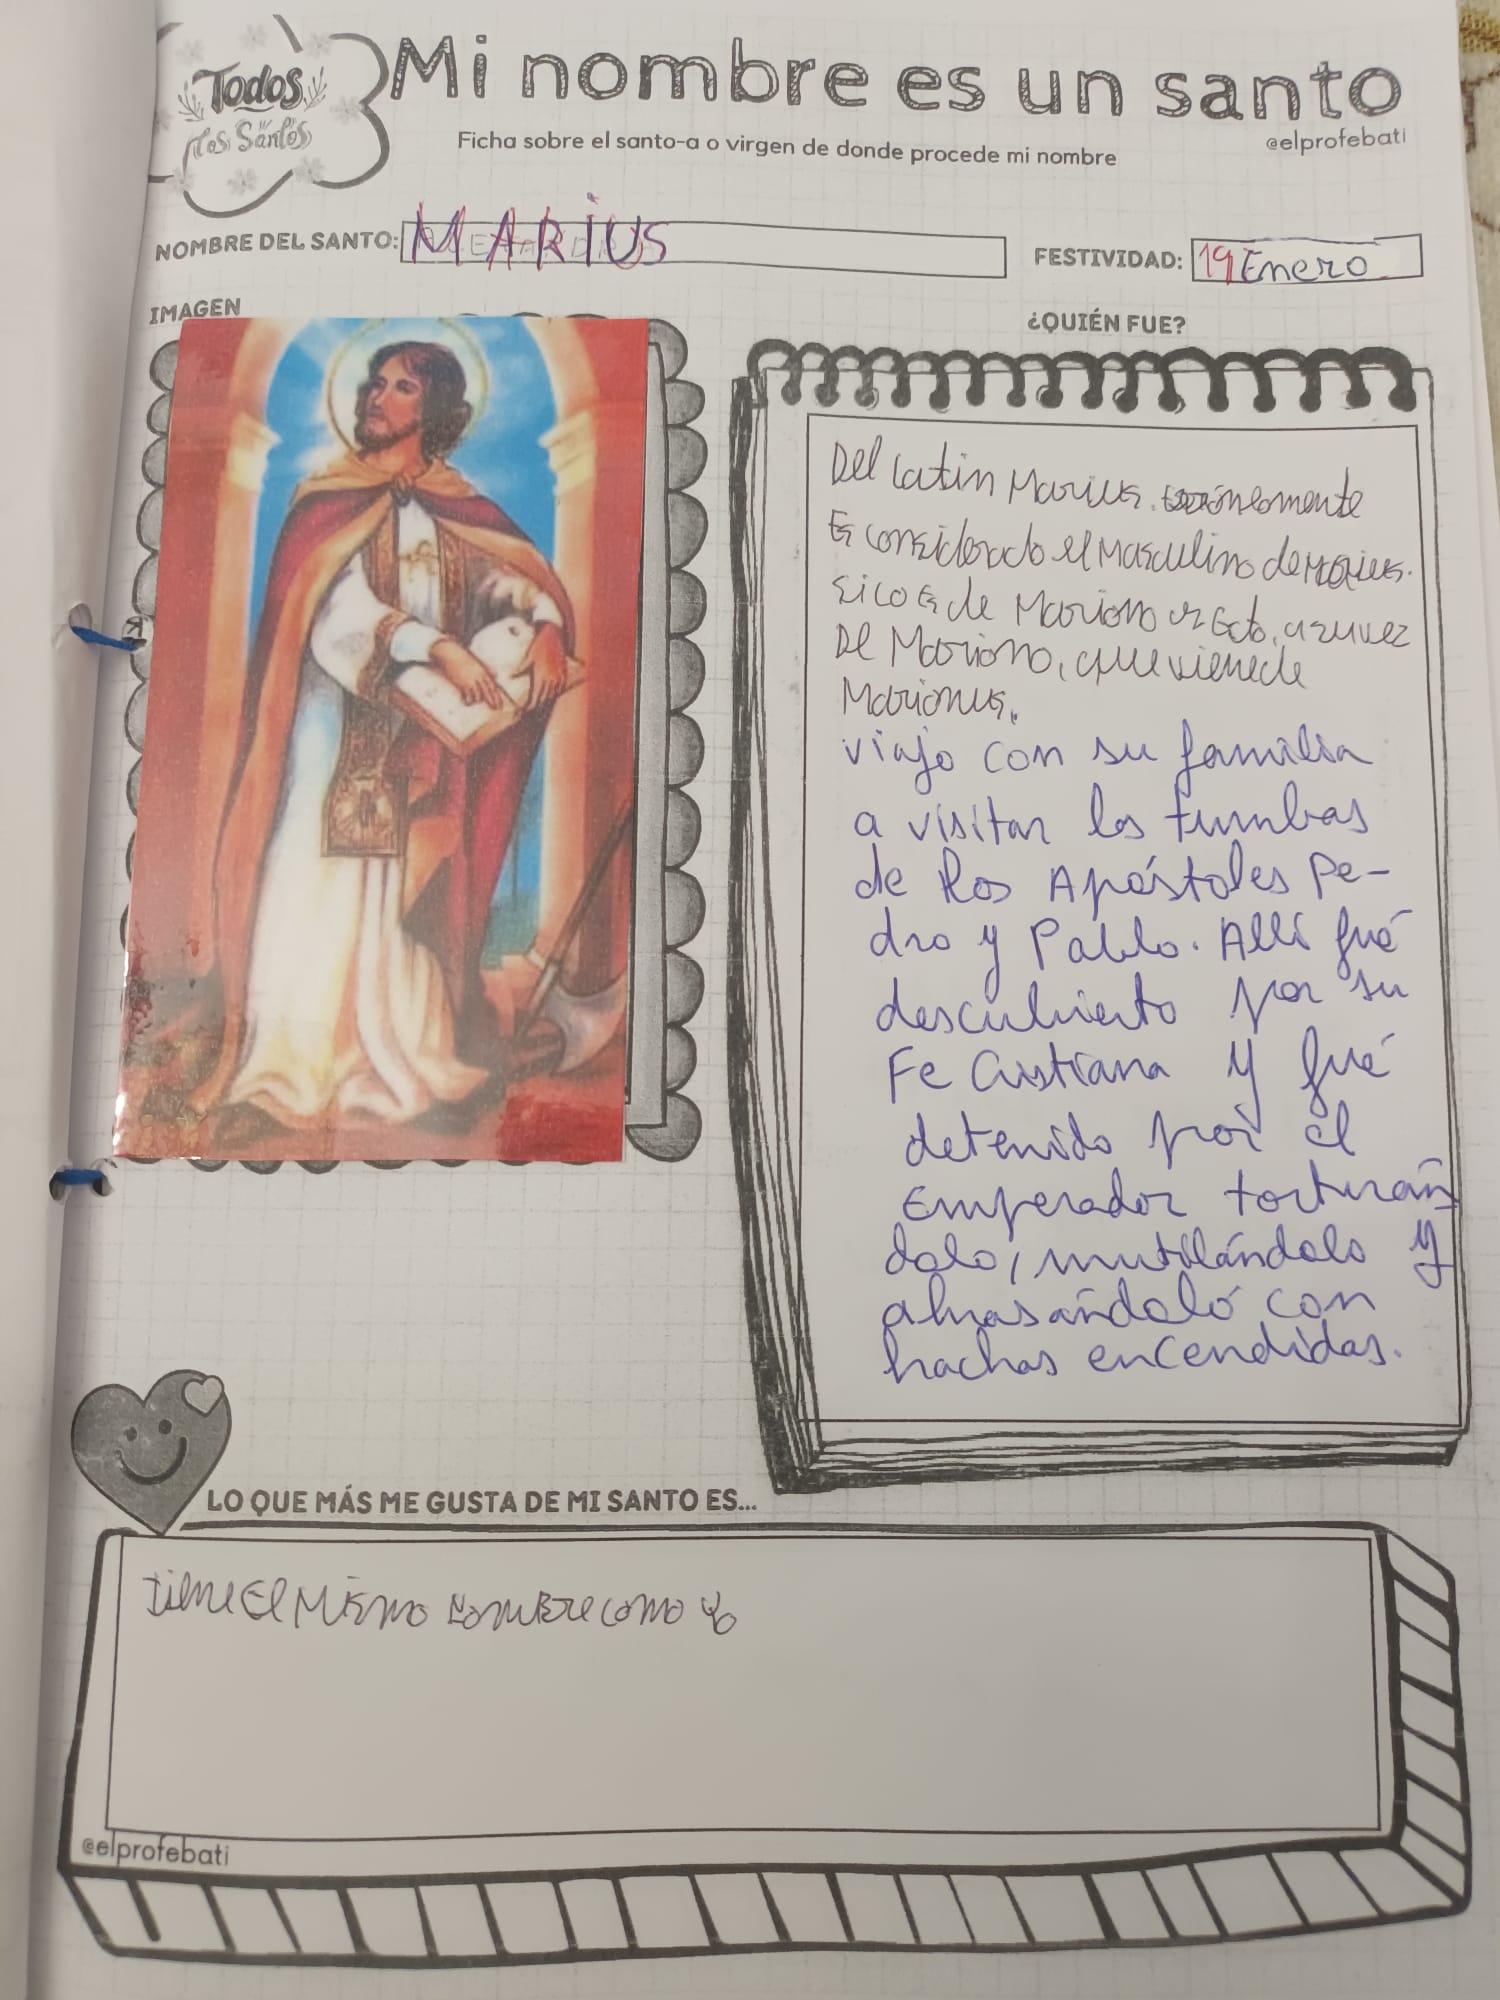 Todos
los Santos
Mi nombre es un santo
@elprofebati
Ficha sobre el santo-a o virgen de donde procede mi nombre
NOMBRE DEL SANTO: MARiUS
FESTIVIDAD: 19 Enero
IMAGEN
¿QUIÉN FUE?
Del Latin Marius.
Es considerado el Masculino de
de Mariano
De Mariano, que viene de
Marianus.
viajo con su familia
a visitar las tumbas
de los Apóstoles Pe-
dro y Pablo. Allí fué
descubierto por su
Fe Cristiana y fué
detenido por el
Emperador torturán
dolo, mutilándolo y
abrasándoló con
hachas encendidas.
LO QUE MÁS ME GUSTA DE MI SANTO ES...
tiene El Mismo nombre como yo
@elprofebati